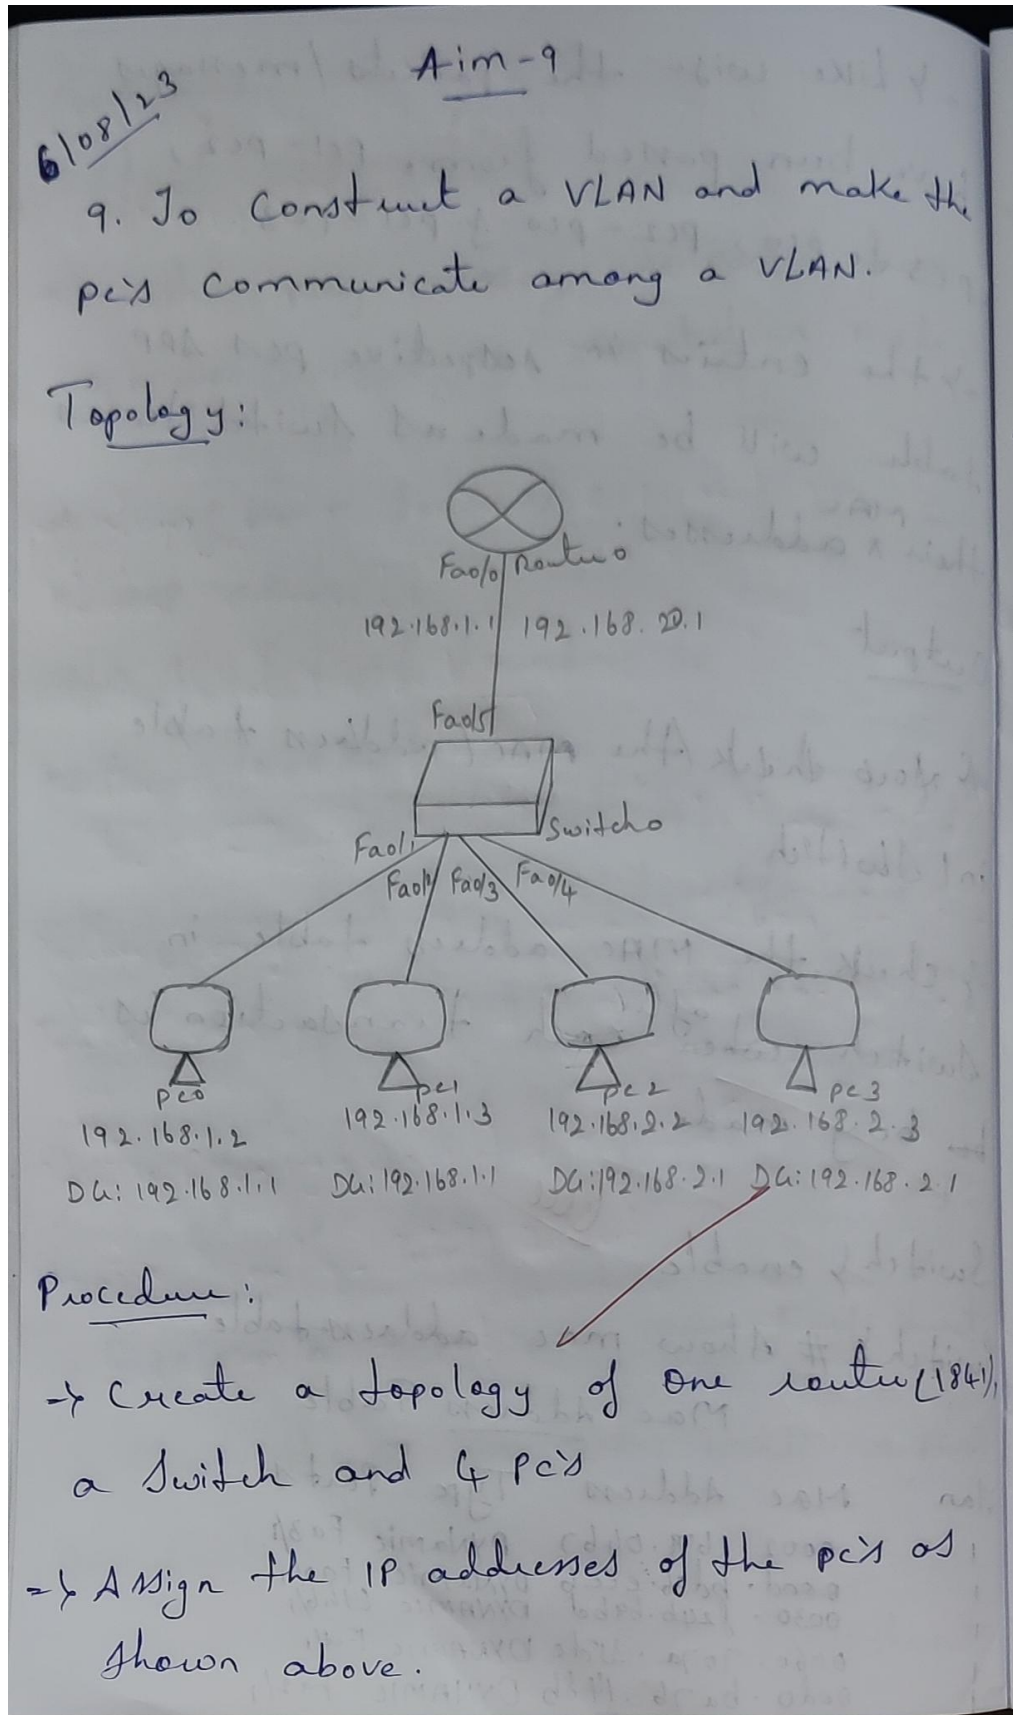 Aim-9
6/08/23
9. To Construct a VLAN and make the
pc's communicate among a VLAN.
Topology:
Fa0/0 Router0
192.168.1.1 192.168.20.1
Fa0/5
Switch0
Fa0/1
Fa0/3 Fa0/4
pc0 pc1 pc2 pc3
192.168.1.2 192.168.1.3 192.168.2.2 192.168.2.3
DG: 192.168.1.1 DG: 192.168.1.1 DG: 192.168.2.1 DG: 192.168.2.1
Procedure:
-> Create a topology of one router (1841),
a switch and 4 pc's
=> Assign the IP addresses of the pc's as
shown above.